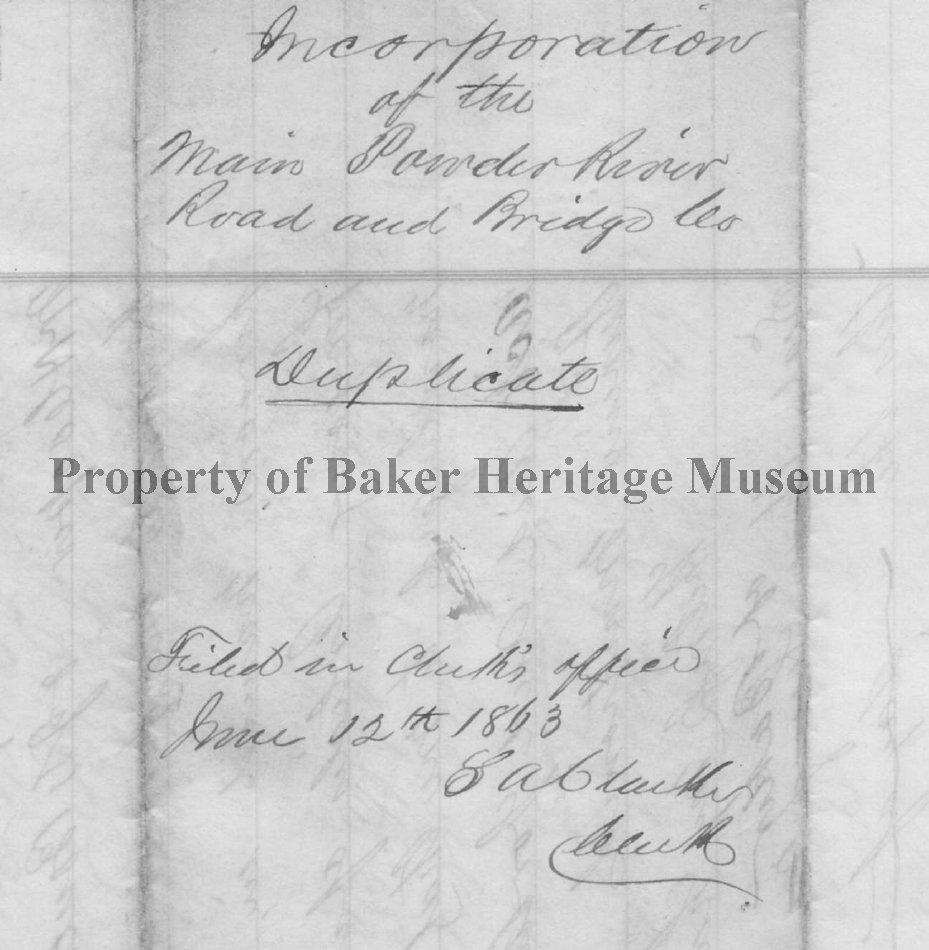 Incorporation
of the
Main Powder River
Road and Bridge Co
Duplicate
Property of Baker Heritage Museum
Filed in Clerk's office
June 12th 1863
S A Clarke
Clerk